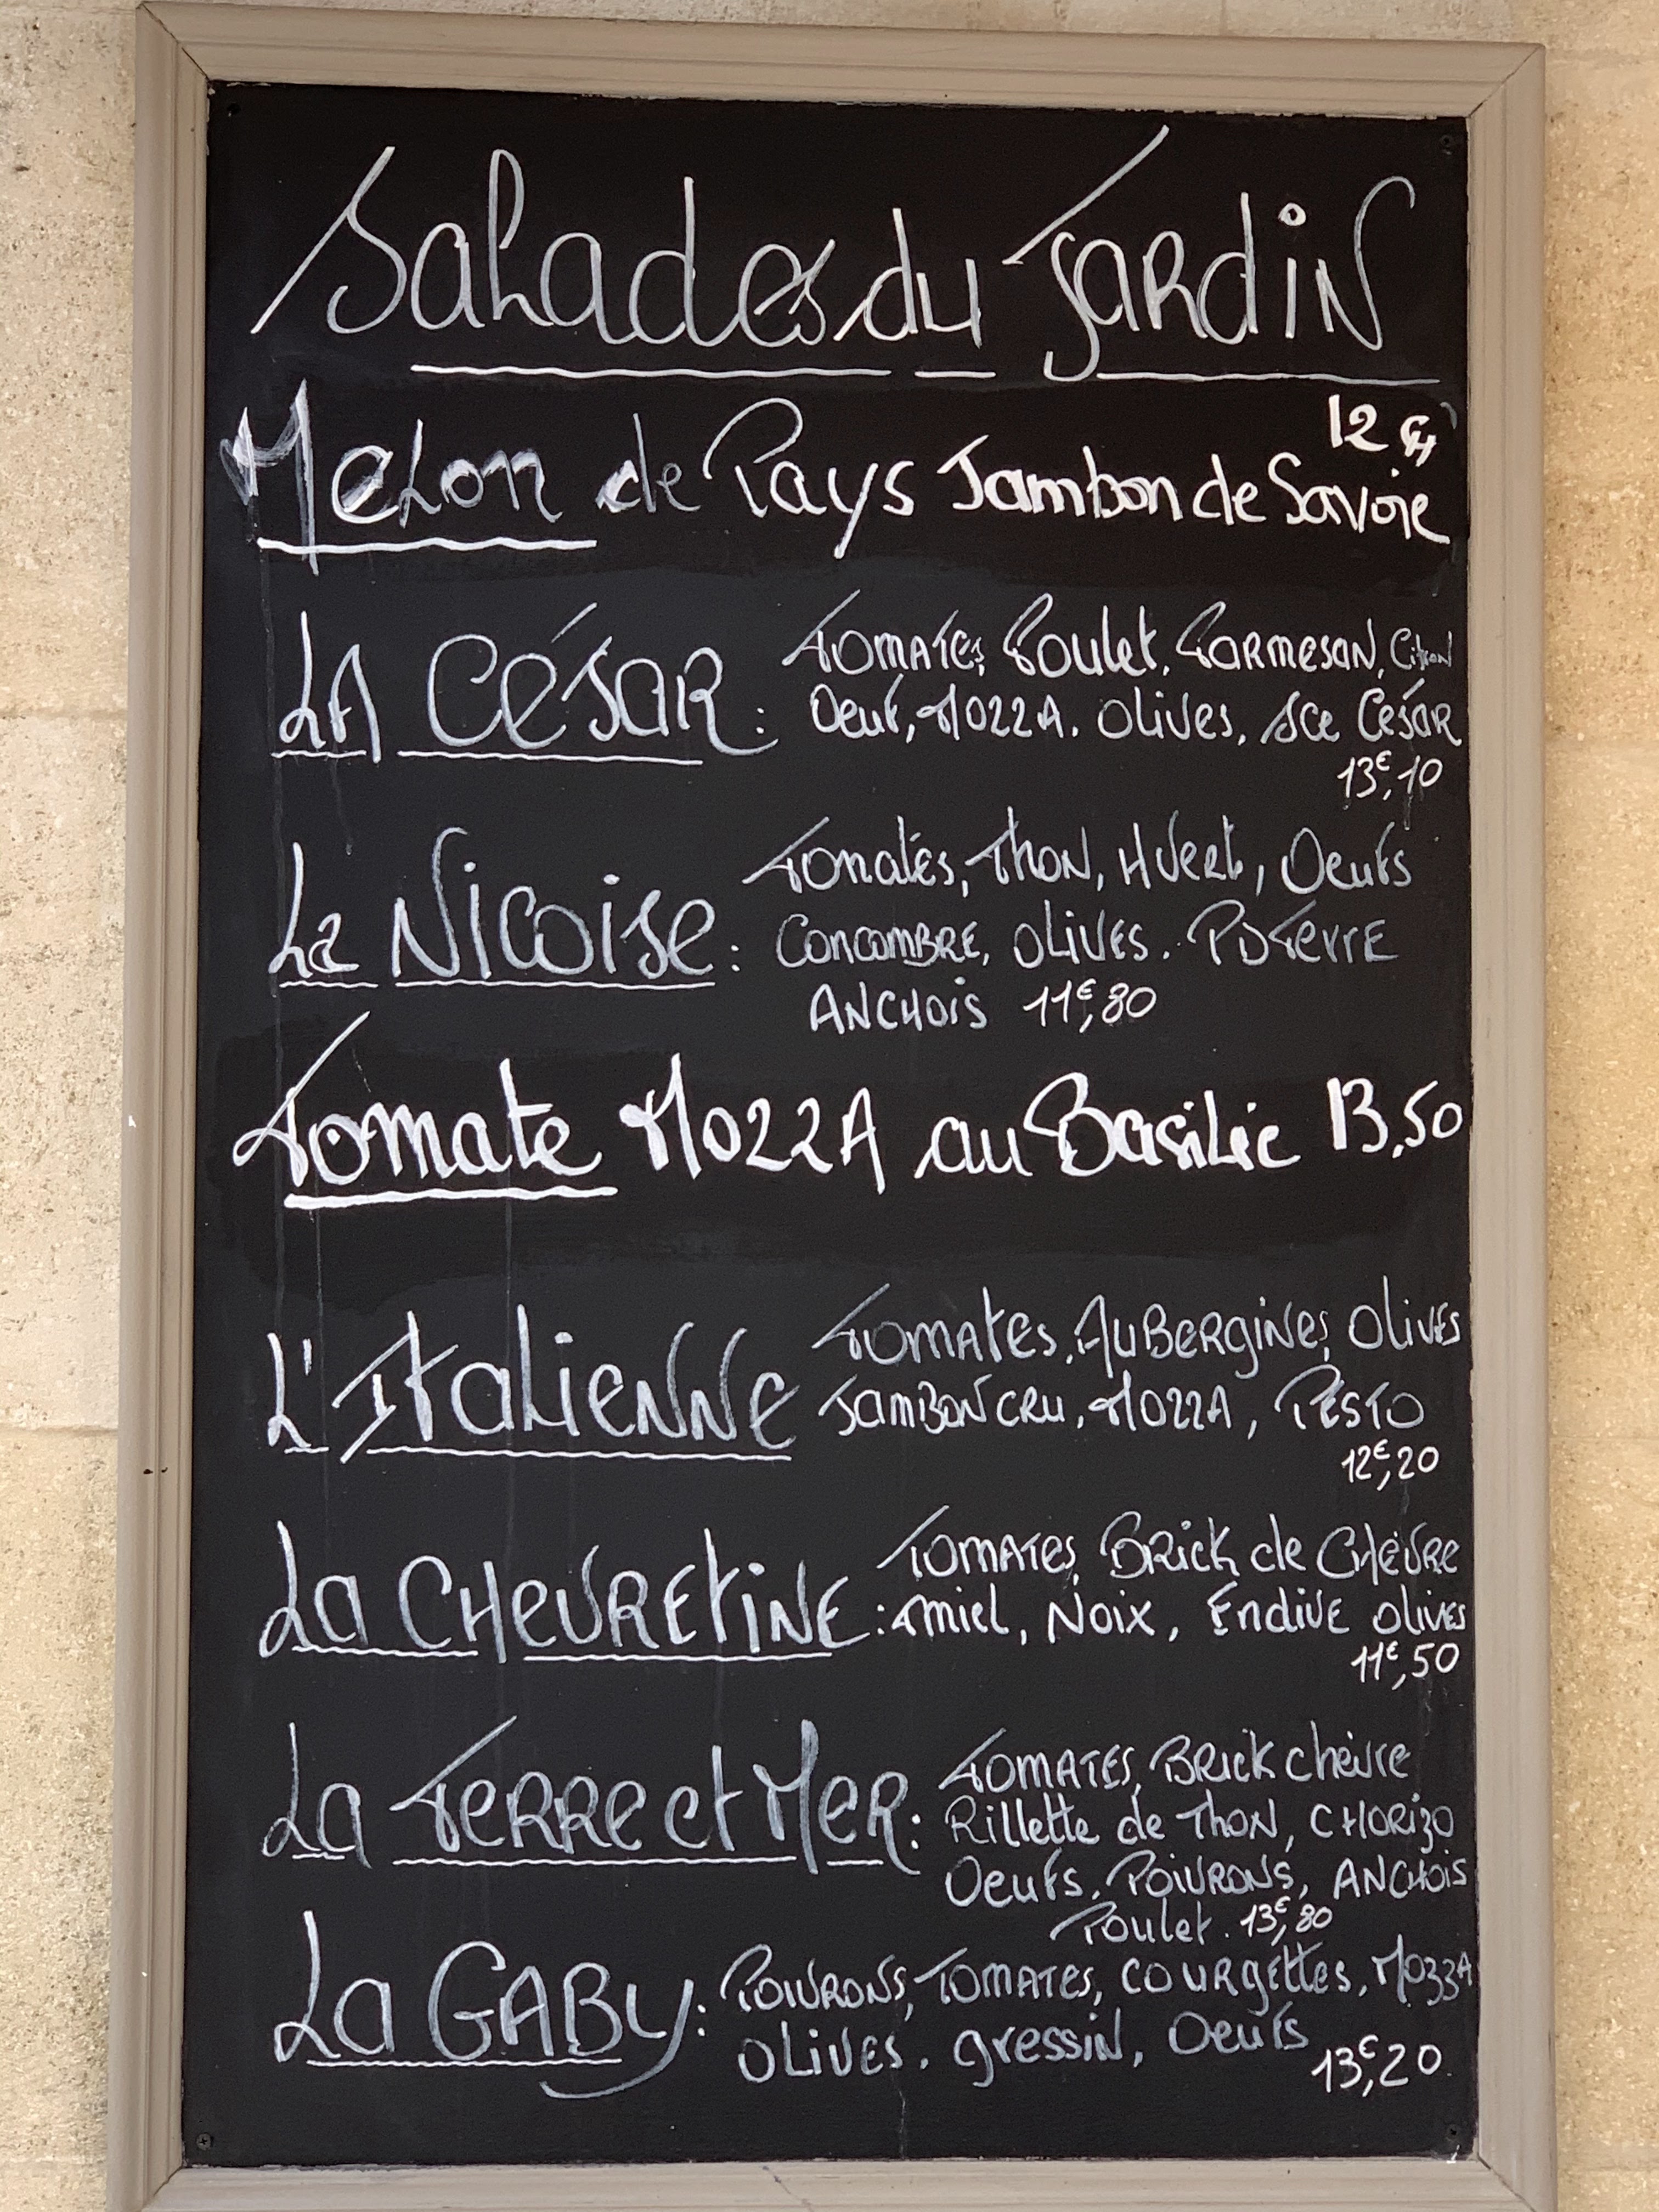 Salades du Jardin
12€
Melon de Pays Jambon de Savoie
LA CÉSAR : TOMATES, Poulet, PARMESAN, Citron
Oeuf, MOZZA, OLIVES, Sce CÉSAR
13€,10
La NICOISE : TOMATES, THON, HVERT, Oeufs
CONCOMBRE, OLIVES. PDTERRE
ANCHOIS 11€,80
Tomate MOZZA au Basilic 13,50
L'ITALIENNE TOMATES, AUBERGINES, OLIVES
JAMBON CRU, MOZZA, PESTO
12€,20
La CHEVRETINE : TOMATES, BRICK de CHÈVRE
Amiel, NOIX, ENDIVE OLIVES
11€,50
La TERRE et MER : TOMATES, BRICK chèvre
Rillette de THON, CHORIZO
Oeufs, POIVRONS, ANCHOIS
Poulet. 13€,80
La GABY : POIVRONS, TOMATES, COURGETTES, MOZZA
OLIVES, gressin, Oeufs
13€,20